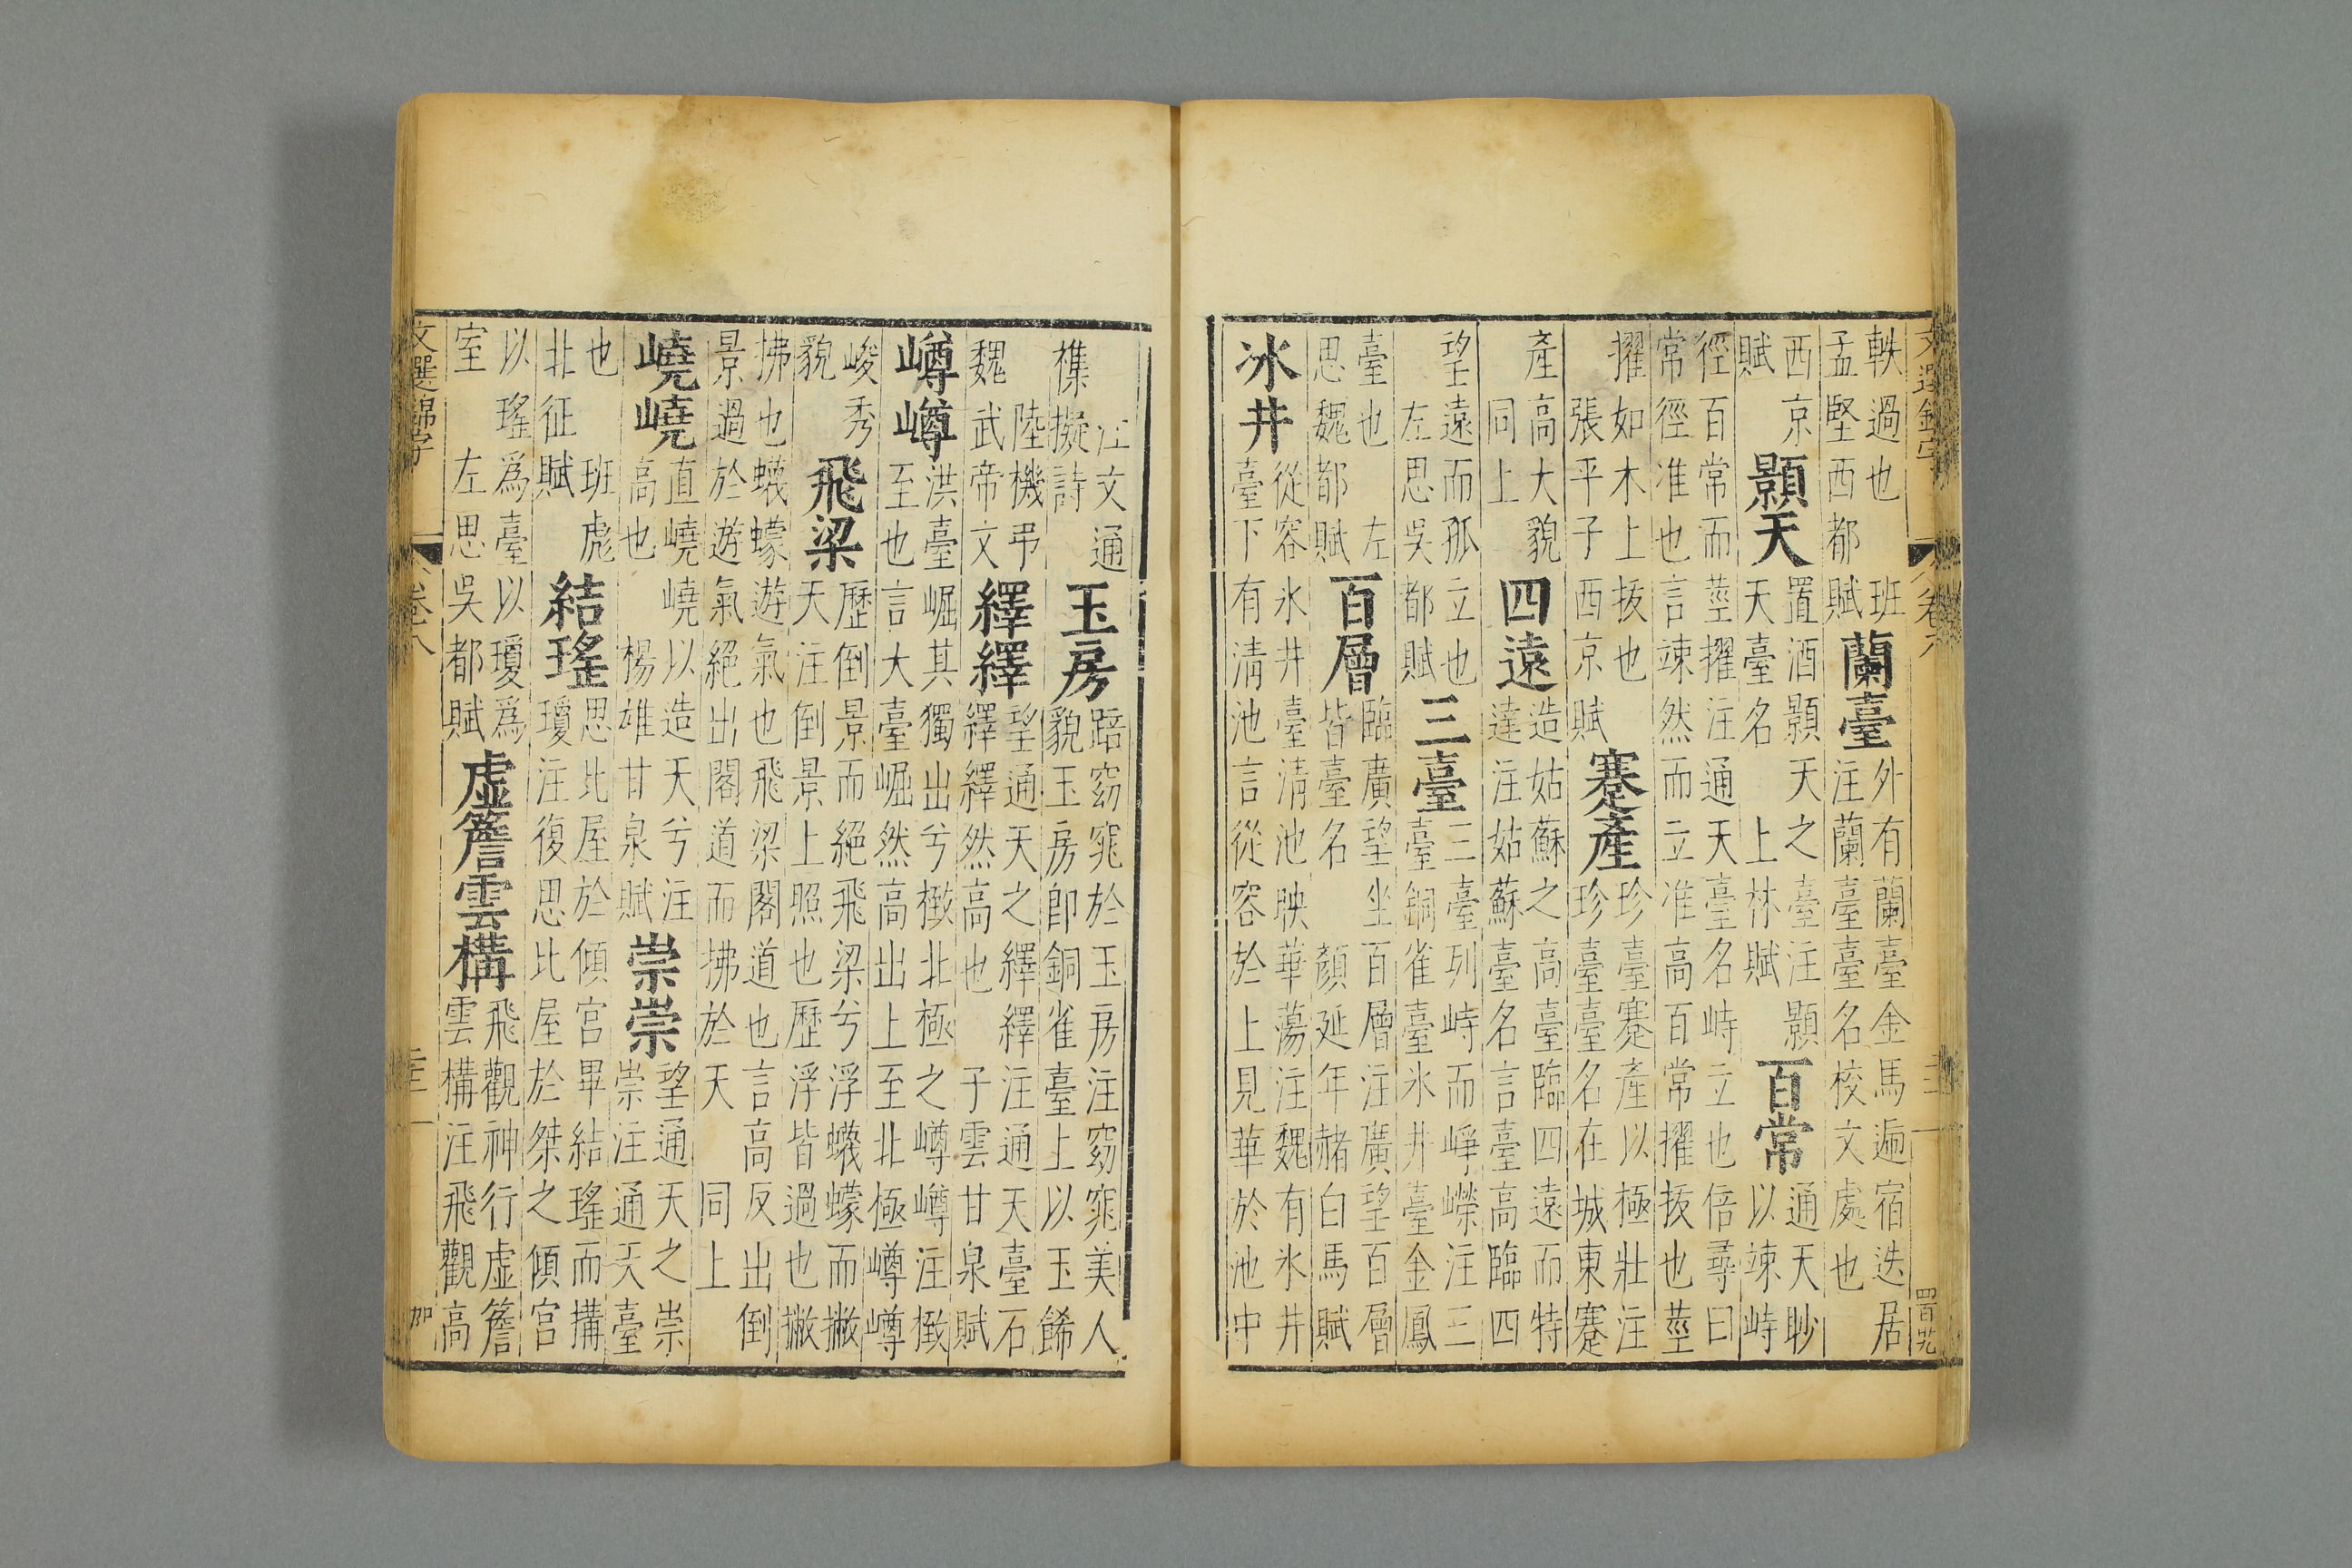 文選錦字 卷八 四百九
軼過也 班孟堅西都賦 蘭臺 外有蘭臺金馬遍宿迭居注蘭臺臺名校文處也
西京賦 顥天 置酒顥天之臺注顥天臺名 上林賦 百常 通天眇以竦峙
徑百常而莖擢注通天臺名峙立也倍尋曰常徑准也言竦然而立准高百常擢拔也莖
擢如木上拔也 張平子西京賦 蹇產 珍臺蹇產以極壯注珍臺臺名在城東蹇
產高大貌 同上 四遠 造姑蘇之高臺臨四遠而特達注姑蘇臺名言臺高臨四
望遠而孤立也 左思吳都賦 三臺 三臺列峙而崢嶸注三臺銅雀臺氷井臺金鳳
臺也 左思魏都賦 百層 臨廣望坐百層注廣望百層皆臺名 顏延年赭白馬賦
冰井 從容氷井臺清池映華蕩注魏有氷井臺下有清池言從容於上見華於池中
江文通襍擬詩 玉房 踣窈窕於玉房注窈窕美人貌玉房即銅雀臺上以玉餙
陸機弔魏武帝文 繹繹 望通天之繹繹注通天臺石繹繹然高也 子雲甘泉賦
嶟嶟 洪臺崛其獨出兮㨖北極之嶟嶟注㨖至也言大臺崛然高出上至北極嶟嶟
峻秀貌 飛梁 歷倒景而絕飛梁兮浮蠛蠓而撇天注倒景上照也歷浮皆過也撇
拂也蠛蠓遊氣也飛梁閣道也言高反出倒景過於遊氣絕出閣道而拂於天 同上
嶢嶢 直嶢嶢以造天兮注高也 楊雄甘泉賦 崇崇 望通天之崇崇注通天臺
也 班彪北征賦 結瑤 思比屋於傾宮畢結瑤而搆瓊注復思比屋於桀之傾宮
以瑤爲臺以瓊爲室 左思吳都賦 虛簷雲構 飛觀神行虛簷雲構注飛觀高
文選錦字 卷八 加